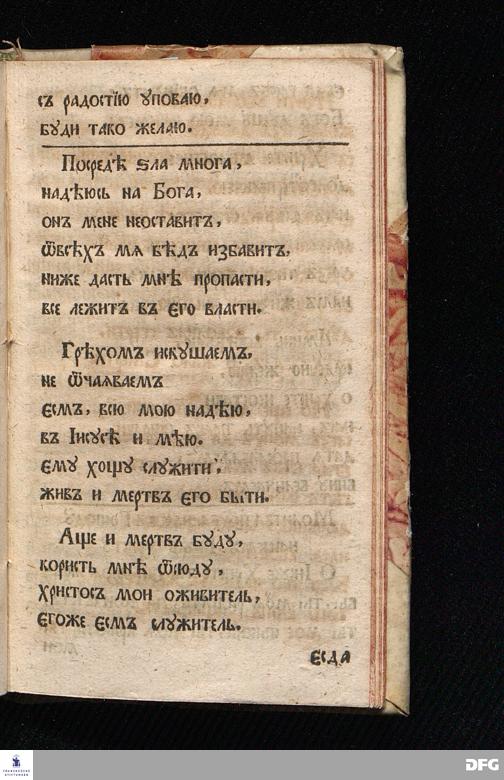 съ радостїю уповаю,
буди тако желаю.
Посредѣ ѕла многа,
надѣюсь на Бога,
онъ мене неоставитъ,
ѿвсѣхъ мѧ бѣдъ избавитъ,
ниже дасть мнѣ пропасти,
все лежитъ въ єго власти.
Грѣхомъ искушаемъ,
не ѿчаяваемъ
єсмъ, всю мою надѣю,
въ Іисусѣ и мѣю.
єму хощу служити,
живъ и мертвъ єго быти.
Аще и мертвъ буду,
користь мнѣ ѿсюду,
христосъ мои оживитель,
єгоже єсмъ служитель.
єсда
FRANCKESCHE STIFTUNGEN
DFG